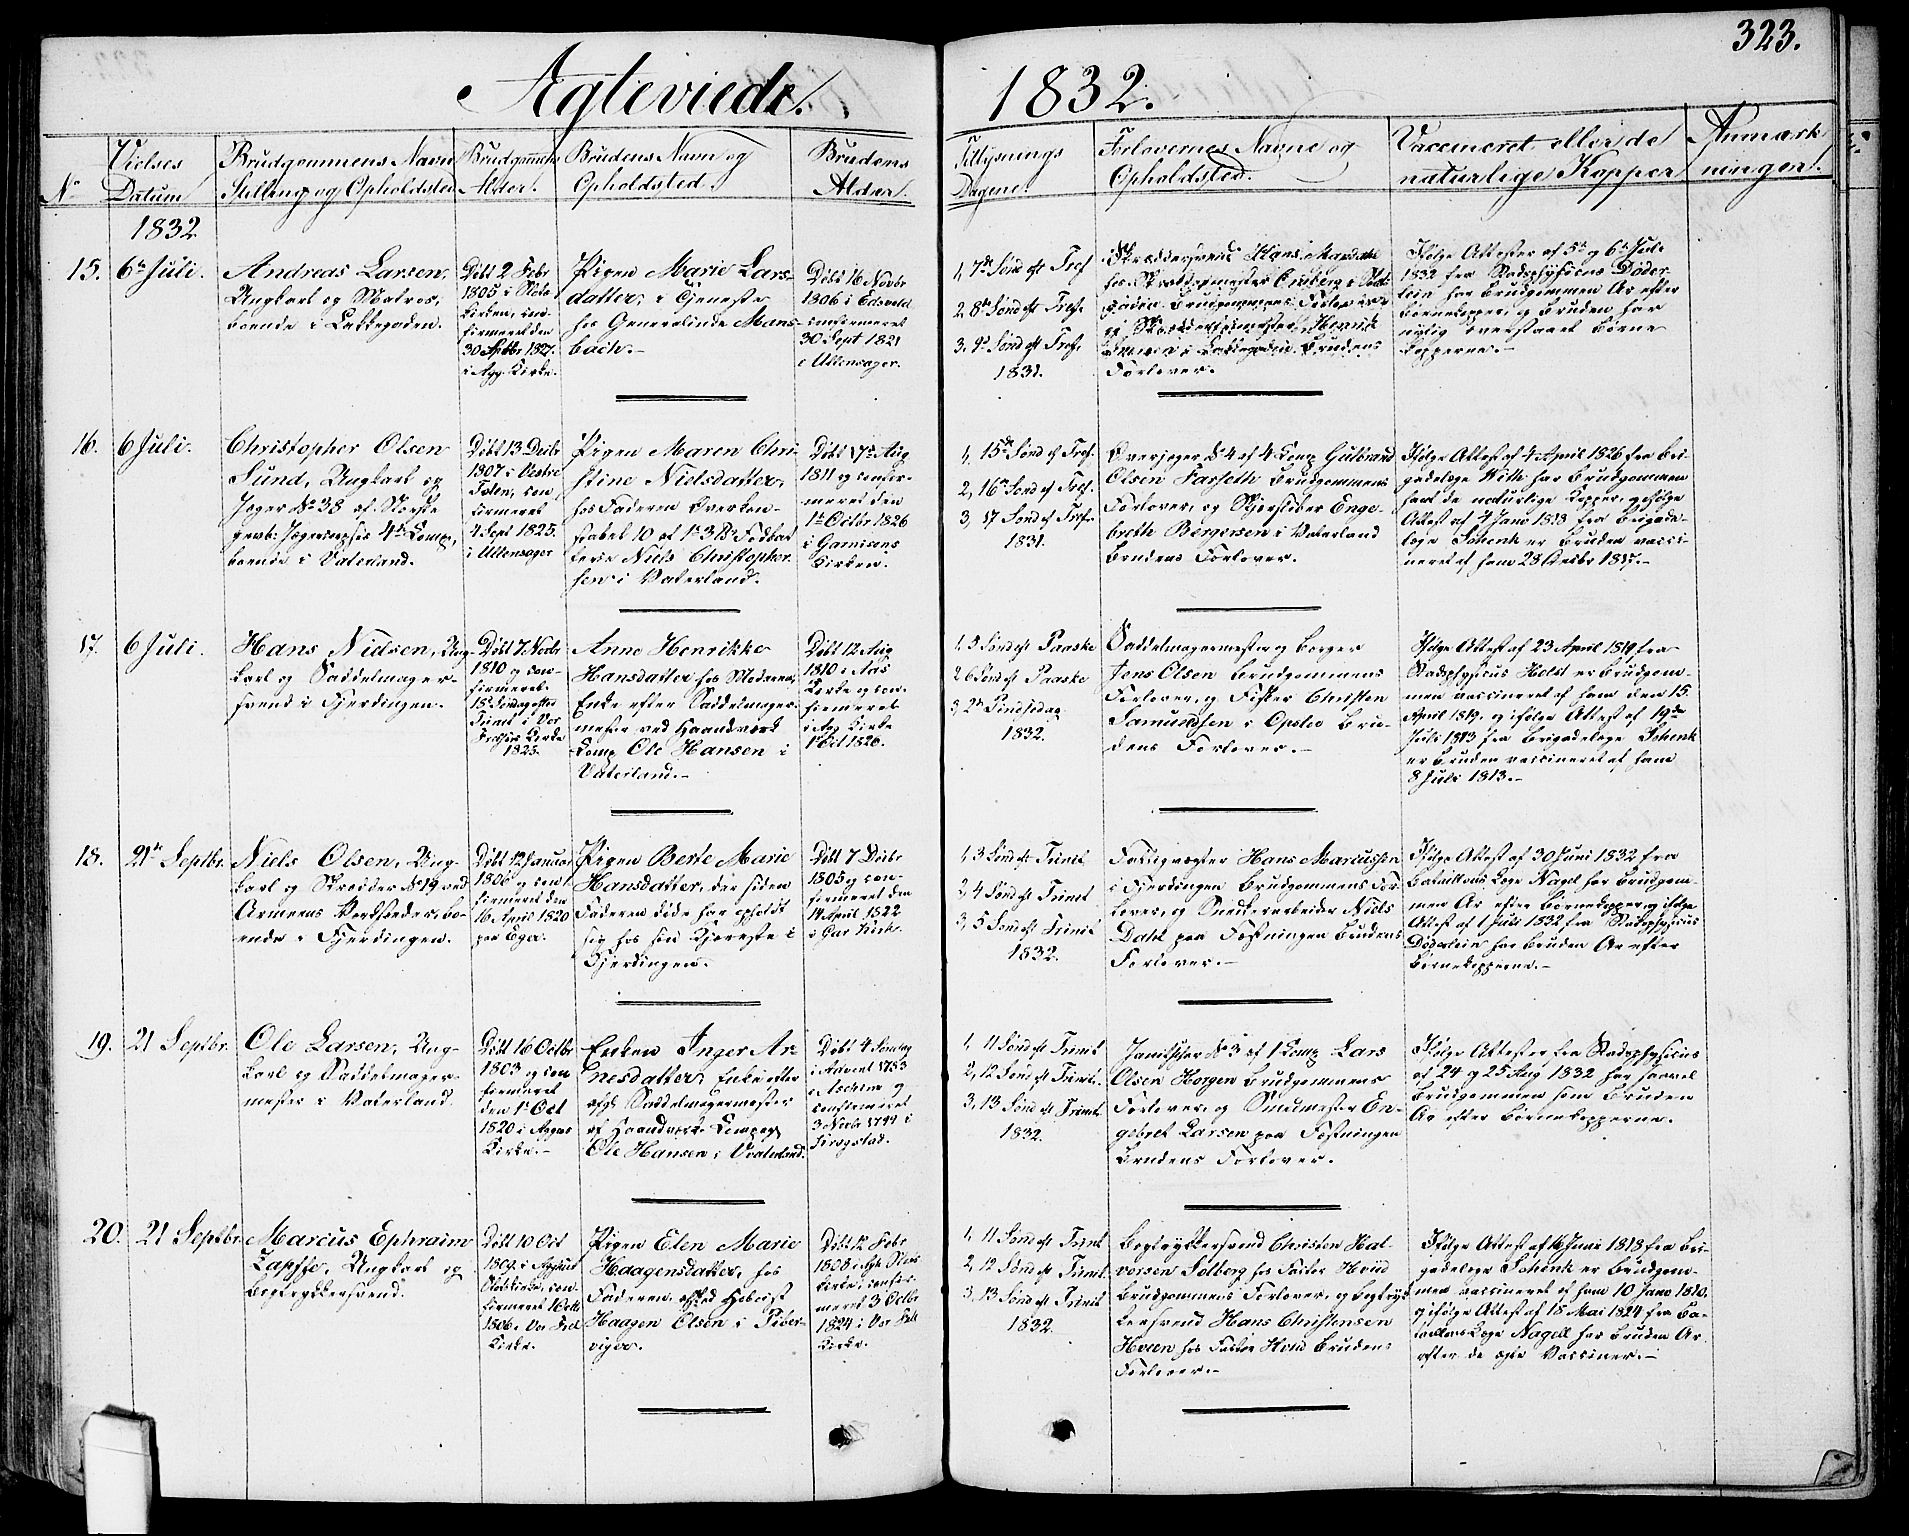 323.
Ægteviede.
1832.
No
Vielses
Datum
Brudgommens Navn
Stilling og Opholdsted
Brudgommens
Alder.
Brudens Navn og
Opholdsted.
Brudens
Alder.
Tillysnings
Dagene.
Forlovernes Navne og
Opholdsted.
Vaccineret eller de
naturlige Kopper
Anmærk-
ninger.
1832.
15.
6te Juli.
Andreas Larsen,
Ungkarl og Matros,
boende i Lakkegaden.
Døbt 2 Febr
1805 i
Kirken, con-
firmeret den
30 Septbr 1821.
i Agg. Kirke.
Pigen Marie Lars-
datter, i Tjeneste
hos Generalinde Mans-
bach.-
Døbt 16 Novbr
1806 i Edsvold
confirmeret
30 Sept 1821
i Ullensager.
1, 7de Sønd eft Tref.
2, 8de Sønd eft Tref.
3, 9de Sønd eft Tref.
1831.
Skrædersvend Hans
hos Skrædermester
Brudgommens Forlover
og Skrædermester Henrik
i Lakkegaden Brudens
Forlover.
Ifølge Attester af 5te og 6te Juli
1832 fra Stadsphysicus Døder-
lein har Brudgommen Ar efter
Børnekopper, og Bruden har
nylig overstaaet Børne
kopperne.-
16.
6 Juli.
Christopher Olsen
Lund, Ungkarl og
Jæger No 38 af Norske
gevb: Jægercorpses 4de Comp,
boende i Vaterland.
Døbt 13 Decbr
1807 i Vestre
Toten, con-
firmeret
4 Sept 1825.
i Ullensager
Pigen Maren Chri-
stine Nielsdatter,
hos Faderen
10 af 1ste
Niels Christopher-
sen i Vaterland.
Døbt 17de Aug
1811 og confir-
meret den
1ste Octbr 1826
i Garnisons
Kirken.
1, 15de Sønd ef Tref.
2, 16de Sønd ef Tref.
3, 17 Sønd ef Tref.
1831.
Overjæger No 4 af 4 Comp Gulbrand
Olsen Farseth Brudgommens
Forlover, og Enge-
breth Bergersen i Vaterland
Brudens Forlover.
Ifølge Attest af 4 April 1826 fra Bri-
gadelæge With har Brudgommen
havt de naturlige Kopper, og ifølge
Attest af 4 Janr 1818 fra Brigade-
læge Schenk er Bruden vacci-
neret af ham 28 Octbr 1817.-
17.
6 Juli.
Hans Nielsen, Ung-
karl og Saddelmager-
svend i Fjerdingen.
Døbt 7 Novbr
1810 og con-
firmeret
15de Søndag efter
Trinit i Vor
Frelsers Kirke
1825.
Anne Henrikke
Hansdatter hos Moderen,
Enke efter Saddelmager-
mester ved Haandværk
Comp Ole Hansen i
Vaterland.-
Døbt 12 Aug
1810 i Aas
Kirke og con-
firmeret
i Agg Kirke
1ste Oct 1826.
1, 5 Sønd eft Paaske
2, 6 Sønd eft Paaske
3, 2den Pindsedag
1832.
Saddelmagermester og Borger
Jens Olsen Brudgommens
Forlover, og Fisker Christen
Samundsen i Opslo Bru-
dens Forlover.-
Ifølge Attest af 23 April 1819 fra
Stadsphysicus Holst er Brudgom-
men vaccineret af ham den 15
April 1819, og ifølge Attest af 19de
Juli 1813 fra Brigadelæge Schenk
er Bruden vaccineret af ham
8 Juli 1813.-
18.
21de Septbr.
Niels Olsen, Ung-
karl og Skræder No 19 ved
Armeens boende
i Fjerdingen.
Døbt 12 Januar
1806 og con-
firmeret den
16 April 1820
paa Eger.
Pigen Berte Marie
Hansdatter, der siden
Faderens Død har opholdt
sig hos sin Kjæreste i
Fjerdingen.
Døbt 7 Decbr
1805 og con-
firmeret den
14 April 1822
i Gar Kirk.
1, 3 Sønd eft Trinit
2, 4 Sønd eft Trinit
3, 5 Sønd eft Trinit
1832.
Hans Marcussen
i Fjerdingen Brudgommens For-
lover, og Snedkerarbeider Niels
Dahl paa Fæstningen Brudens
Forlover.-
Ifølge Attest af 30 Juni 1832 fra
Bataillons Læge Nagel har Brudgom-
men Ar efter Børnekopper, og ifølge
Attest af 1 Juli 1832 fra Stadsphysicus
Døderlein har Bruden Ar efter
Børnekopperne.-
19.
21 Septbr.
Ole Larsen, Ung-
karl og Saddelmager-
mester i Vaterland.
Døbt 16 Octbr
1803 og con
firmeret
den 1ste Oct
1820 i Aggers
Kirke.-
Enken Inger Ar-
nesdatter, Enke efter
afgl. Saddelmagermester
af Haandværks Compagni
Ole Hansen i Vaterland.
Døbt 4 Søndag
i Advent 1783
i Aschim og
confirmeret
3 Novbr 1799 i
Trøgstad.
1, 11 Sønd eft Trinit
2, 12 Sønd eft Trinit.
3, 13 Sønd eft Trinit.
1832.
Janitschar No 3 af 1 Comp Lars
Olsen Horgen Brudgommens
Forlover, og Smedmester En-
gebret Larsen paa Fæstningen
Brudens Forlover.
Ifølge Attester fra Stadsphysicus
af 24 og 25 Aug 1832 har saavel
Brudgommen som Bruden
Ar efter Børnekopperne.
20.
21 Septbr
Marcus Ephraim
Zapffe, Ungkarl og
Bogtrykkersvend.
Døbt 10 Oct
1809 i Aggers
con-
firmeret
i Vor Frel
Kirke.
Pigen Elen Marie
Haagensdatter, hos
Faderen Hoboist
Haagen Olsen i Piber-
vigen.
Døbt 12 Febr
1808 i
Kirke, confir-
meret 3 Octbr
1824 i Vor Frel
Kirke.
1, 11 Sønd eft Trinit
2, 12 Sønd eft Trinit.
3, 13 Sønd eft Trinit
1832.
Bogtrykkersvend Christen Hal-
vorsen Solberg hos Factor Hviid
Brudgommens Forlover, og Bogtryk
kersvend Hans Christensen
Hveen hos Factor Hviid Brudens
Forlover.-
Ifølge Attest af 16 Juni 1818 fra Bri-
gadelæge Schenk er Brudgom-
men vaccineret af ham 10 Janr 1810.
og ifølge Attest af 18 Mai 1824 fra Ba-
taillons Læge Nagell har Bruden Ar
efter de ægte Vacciner.-